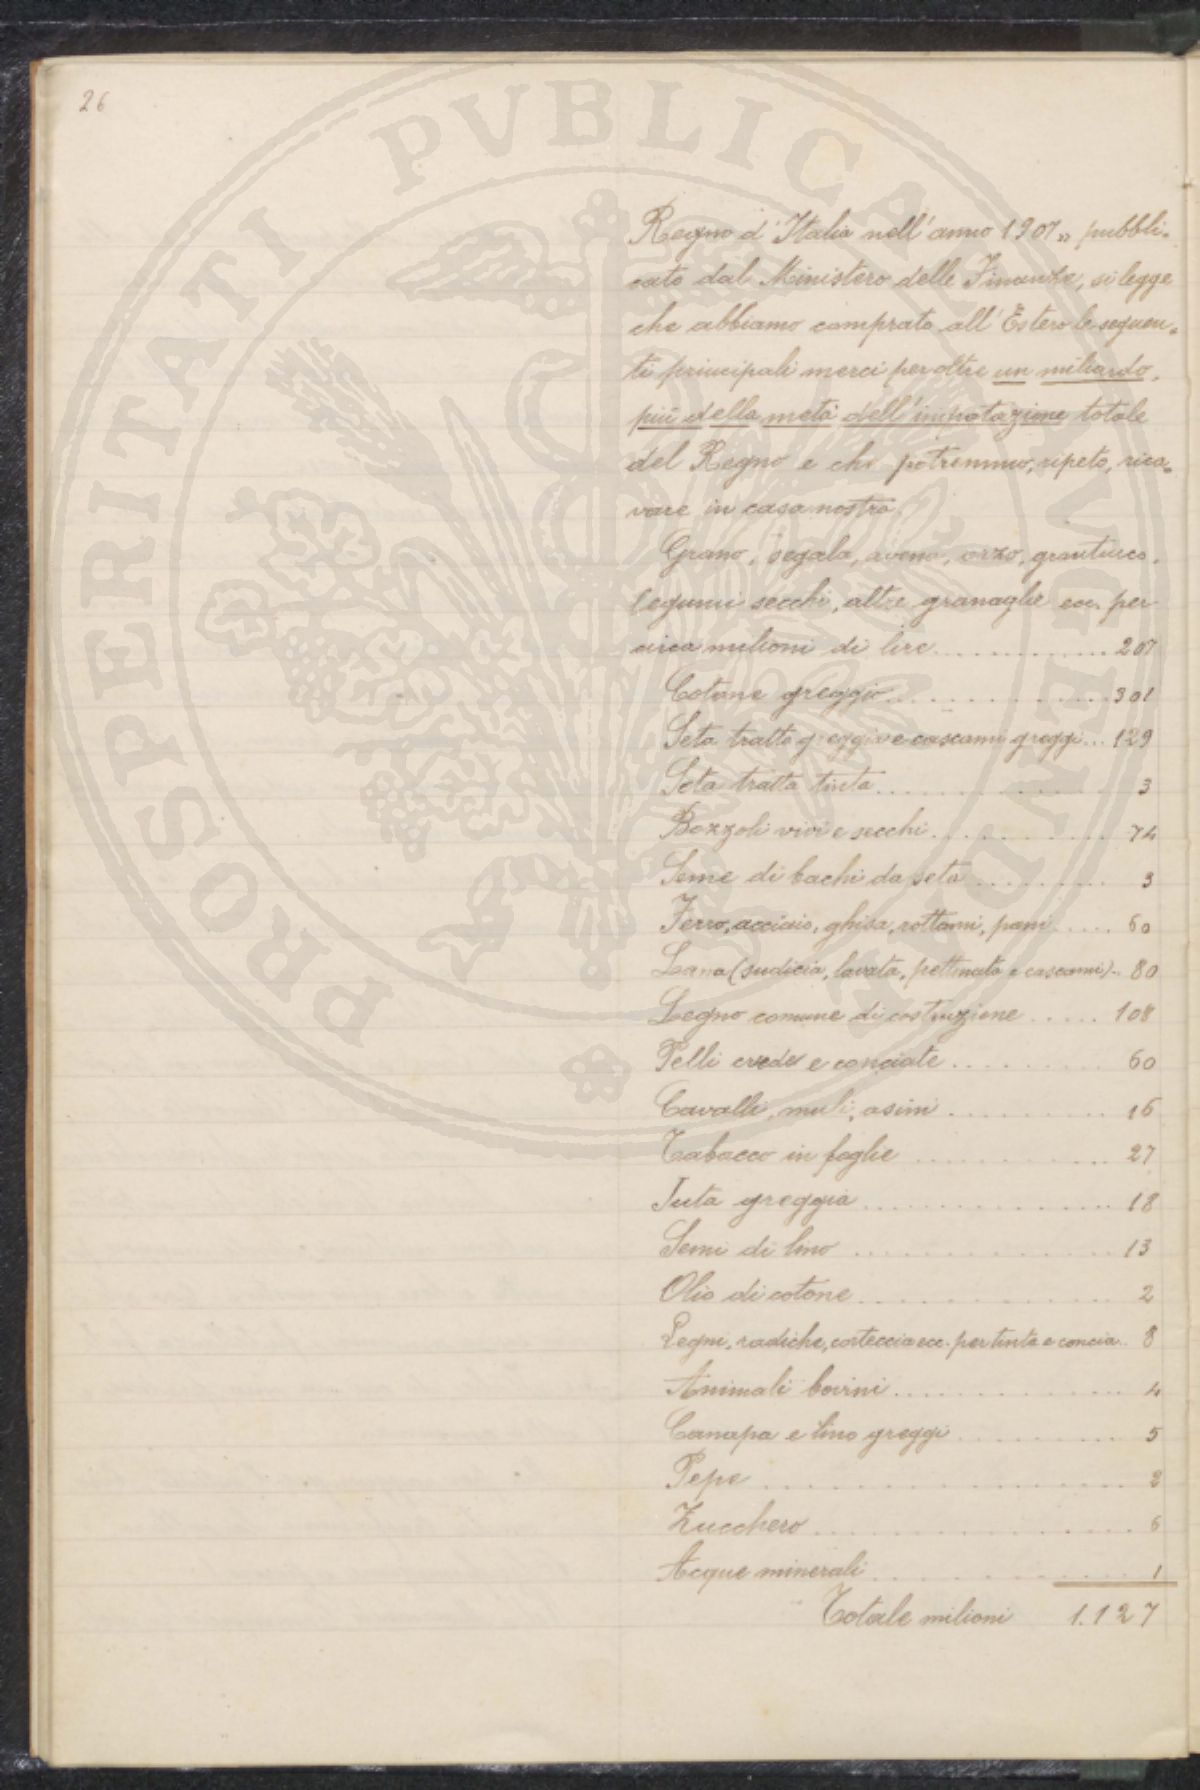 26
PROSPERITATI PVBLICAE AVGENDAE
Regno d'Italia nell'anno 1907" pubbli-
cato dal Ministero delle Finanze, si legge
che abbiamo comprato all'Estero le seguen-
ti principali merci per oltre un miliardo,
più della metà dell'impotazione totale
del Regno e che potremmo, ripeto, rica-
vare in casa nostra.
Grano, segala, avena, orzo, granturco,
legumi secchi, altre granaglie ecc. per
circa milioni di lire ............. 207
Cotone greggio ............. 301
Seta tratta greggia e cascami greggi... 129
Seta tratta tinta ............. 3
Bozzoli vivi e secchi ............. 74
Seme di bachi da seta ......... 3
Ferro, acciaio, ghisa, rottami, pani ..... 60
Lana (sudicia, lavata, pettinata e cascami).. 80
Legno comune di costruzione ..... 108
Pelli crude e conciate ......... 60
Cavalli, muli, asini ......... 16
Tabacco in foglie ............ 27
Juta greggia .............. 18
Semi di lino ............. 13
Olio di cotone ............. 2
Legni, radiche, corteccia ecc. per tinta e concia.. 8
Animali bovini ............. 4
Canapa e lino greggi .......... 5
Pepe .................. 2
Zucchero ................ 6
Acque minerali ............. 1
Totale milioni 1.127